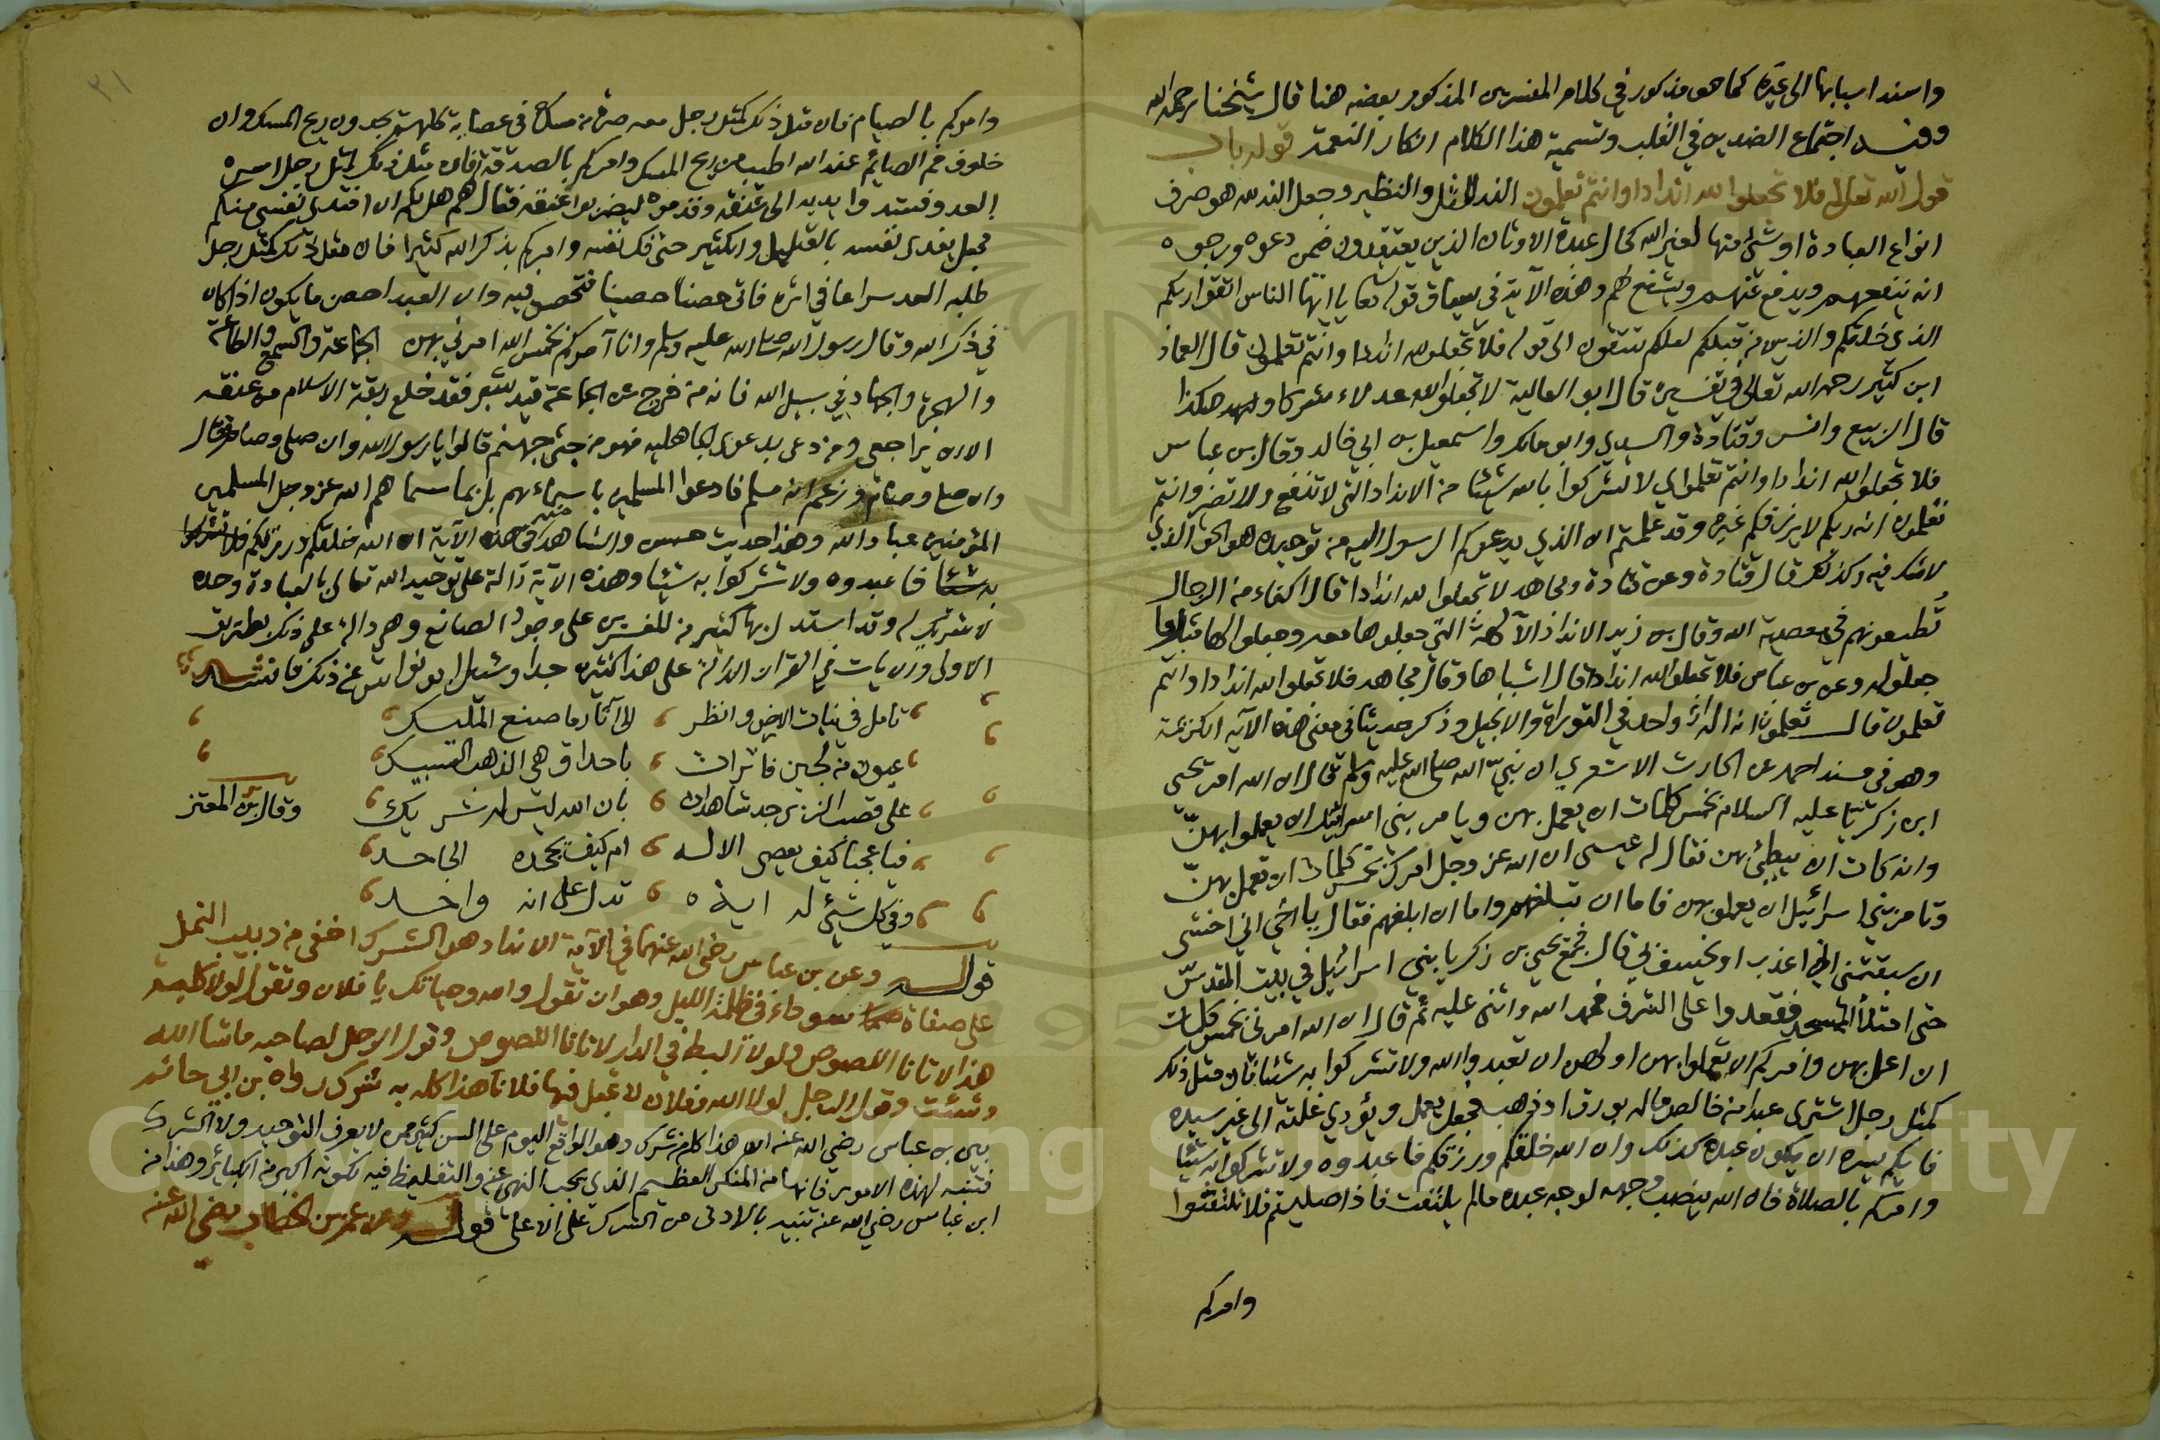 واسند اسبابها الى غيره كما هو مذكور في كلام المفسرين المذكور بعضه هنا قال شيخنا رحمه الله
وفيه اجتماع الضدين في القلب وتسمية هذا الكلام انكار النعمة قوله باب
قول الله تعالى فلا تجعلوا لله اندادا وانتم تعلمون الند المثل والنظير وجعل الند لله هو صرف
انواع العبادة او شئ منها لغير الله كحال عبدة الاوثان الذين يعتقدون فيمن دعوه ورجوه
انه ينفعهم ويدفع عنهم ويشفع لهم وهذه الآية في سياق قوله تعالى يا ايها الناس اتقوا ربكم
الذي خلقكم والذين من قبلكم لعلكم تتقون الى قوله فلا تجعلوا لله اندادا وانتم تعلمون قال العماد
ابن كثير رحمه الله تعالى في تفسيره قال ابو العالية لا تجعلوا لله عدلاء شركاء وهكذا
قال الربيع وانس وقتادة والسدي وابو مالك واسمعيل بن ابي خالد وقال بن عباس
فلا تجعلوا لله اندادا وانتم تعلمون اي لا تشركوا بالله شيئا من الانداد التي لا تنفع ولا تضر وانتم
تعلمون انه ربكم لا يرزقكم غيره وقد علمتم ان الذي يدعوكم الرسول اليه من توحيده هو الحق الذي
لا شك فيه وكذلك قال قتادة وعن قتادة ومجاهد لا تجعلوا لله اندادا قال اكفاء من الرجال
تطيعونهم في معصية الله وقال بن زيد الانداد الآلهة التي جعلوها معه وجعلوا لها مثل ما
جعلوا له وعن بن عباس فلا تجعلوا لله اندادا قال اشباها وقال مجاهد فلا تجعلوا لله اندادا وانتم
تعلمون قال تعلمون انه اله واحد في التوراة والانجيل وذكر حديثا في معنى هذه الآية الكريمة
وهو في مسند احمد عن الحارث الاشعري ان نبي الله صلى الله عليه وسلم قال ان الله امر يحيى
ابن زكريا عليه السلام بخمس كلمات ان يعمل بهن ويامر بني اسرائيل ان يعملوا بهن
وانه كان ان يبطئ بهن فقال له عيسى ان الله عز وجل امرك بخمس كلمات ان تعمل بهن
وتامر بني اسرائيل ان يعملو بهن فاما ان تبلغهم واما ان ابلغهم فقال يا اخي اني اخشى
ان سبقتني ان اعذب او يخسف بي قال فجمع يحيى بن زكريا بني اسرائيل في بيت المقدس
حتى امتلأ المسجد فقعدوا على الشرف فحمد الله واثنى عليه ثم قال ان الله امرني بخمس كلمات
ان اعمل بهن وامركم ان تعملوا بهن اولهن ان تعبدوا الله ولا تشركوا به شيئا فان مثل ذلك
كمثل رجل اشترى عبدا من خالص ماله بورق او ذهب فجعل يعمل ويؤدي غلته الى غير سيده
فايكم يسره ان يكون عبده كذلك وان الله خلقكم ورزقكم فاعبدوه ولا تشركوا به شيئا
وامركم بالصلاة فان الله ينصب وجهه لوجه عبده ما لم يلتفت فاذا صليتم فلا تلتفتوا
وامركم
٢١
وامركم بالصيام فان مثل ذلك كمثل رجل معه صرة من مسك في عصابة كلهم يجدون ريح المسك وان
خلوف فم الصائم عند الله اطيب من ريح المسك وامركم بالصدقة فان مثل ذلك كمثل رجل اسره
العدو فشدوا يديه الى عنقه وقدموه ليضربوا عنقه فقال لهم هل لكم ان افتدي نفسي منكم
فجعل يفدى نفسه بالقليل والكثير حتى فك نفسه وامركم بذكر الله كثيرا فان مثل ذلك كمثل رجل
طلبه العدو سراعا في اثره فاتى حصنا حصينا فتحصن فيه وان العبد احصن ما يكون اذا كان
في ذكر الله وقال رسول الله صلى الله عليه وسلم وانا آمركم بخمس الله امرني بهن الجماعة والسمع والطاعة
والهجرة والجهاد في سبيل الله فانه من خرج عن الجماعة قيد شبر فقد خلع ربقة الاسلام من عنقه
الا ان يراجع ومن دعى بدعوى الجاهليه فهو من جثى جهنم قالوا يا رسول الله وان صلى وصام فقال
وان صلى وصام وزعم انه مسلم فادعوا المسلمين باسمائهم بل بما سماهم الله عز وجل المسلمين
المؤمنين عباد الله وهذا حديث حسن والشاهد منه في هذه الآية ان الله خلقكم ورزقكم فلا تشركوا
به شيئا فاعبدوه ولا تشركوا به شيئا وهذه الآية دالة على توحيد الله تعالى بالعبادة وحده
لا شريك له وقد استدل بها كثير من المفسرين على وجود الصانع وهي دالة على ذلك بطريق
الاولى والايات في القران الدالة على هذا كثيرة جدا وسئل ابو نواس عن ذلك فانشد
تامل في نبات الارض وانظر الى آثار ما صنع المليك
عيون من لجين فاترات باحداق هي الذهب السبيك
على قصب الزبرجد شاهدات بان الله ليس له شريك وقال بن المعتز
فيا عجبا كيف يعصى الاله ام كيف يجحده الجاحد
وفي كل شيئ له اية تدل على انه واحد
قوله وعن بن عباس رضي الله عنهما في الآية الانداد هو الشرك اخفى من دبيب النمل
على صفاة سوداء في ظلمة الليل وهو ان تقول والله وحياتك يا فلان وتقول لولا كليبة
هذا لاتانا اللصوص ولولا البط في الدار لاتانا اللصوص وقول الرجل لصاحبه ما شا الله
وشئت وقول الرجل لولا الله وفلان لا تجعل فيها فلانا هذا كله به شرك رواه بن ابي حاتم
بين بن عباس رضي الله عنه ان هذا كله شرك وهو الواقع اليوم على السن كثير ممن لا يعرف التوحيد ولا الشرك
فتنبه لهذه الامور فانها من المنكر العظيم الذي يجب النهي عنه والتغليظ فيه لكونه اكبر من الكبائر وهذا من
ابن عباس رضي الله عنه تنبيه بالادنى من الشرك على الاعلى قوله وعن عمر بن الخطاب رضي الله عنه
Copyright © King Saud University
1957